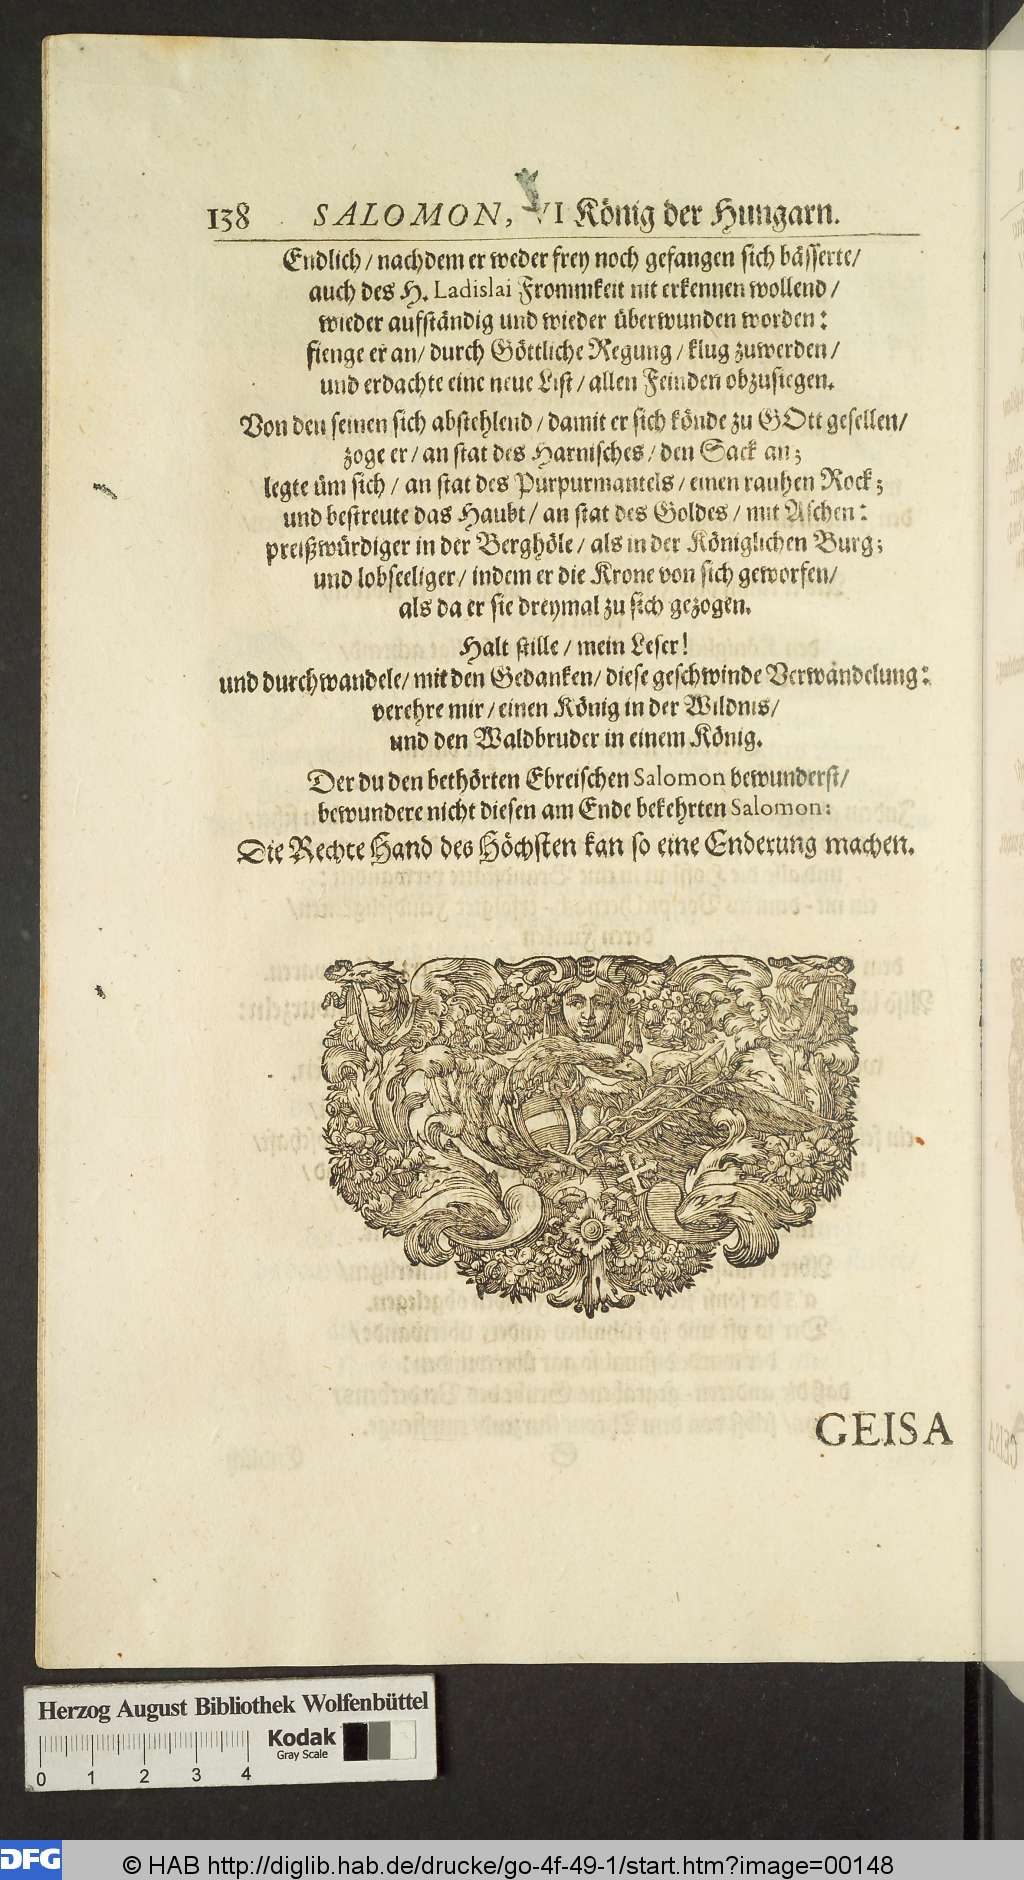 138 SALOMON, VI König der Hungarn.
Endlich / nachdem er weder frey noch gefangen sich bässerte /
auch des H. Ladislai Frommkeit nit erkennen wollend /
wieder aufständig und wieder überwunden worden:
fienge er an / durch Göttliche Regung / klug zuwerden /
und erdachte eine neue List / allen Feinden obzusiegen.
Von den seinen sich abstehlend / damit er sich könde zu GOtt gesellen /
zoge er / an stat des Harnisches / den Sack an;
legte üm sich / an stat des Purpurmantels / einen rauhen Rock;
und bestreute das Haubt / an stat des Goldes / mit Aschen:
preißwürdiger in der Berghöle / als in der Königlichen Burg;
und lobseeliger / indem er die Krone von sich geworfen /
als da er sie dreymal zu sich gezogen.
Halt stille / mein Leser!
und durchwandele / mit den Gedanken / diese geschwinde Verwandelung:
verehre mir / einen König in der Wildnis /
und den Waldbruder in einem König.
Der du den bethörten Ebreischen Salomon bewunderst /
bewundere nicht diesen am Ende bekehrten Salomon:
Die Rechte Hand des Höchsten kan so eine Enderung machen.
GEISA
Herzog August Bibliothek Wolfenbüttel
Kodak
Gray Scale
0 1 2 3 4
DFG
© HAB http://diglib.hab.de/drucke/go-4f-49-1/start.htm?image=00148